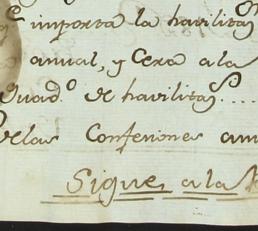 e importa la havilitaⁿ
anual, y Cera a la
Quad.º de havilitaⁿ....
Delas Confesiones anu
Sigue, a la